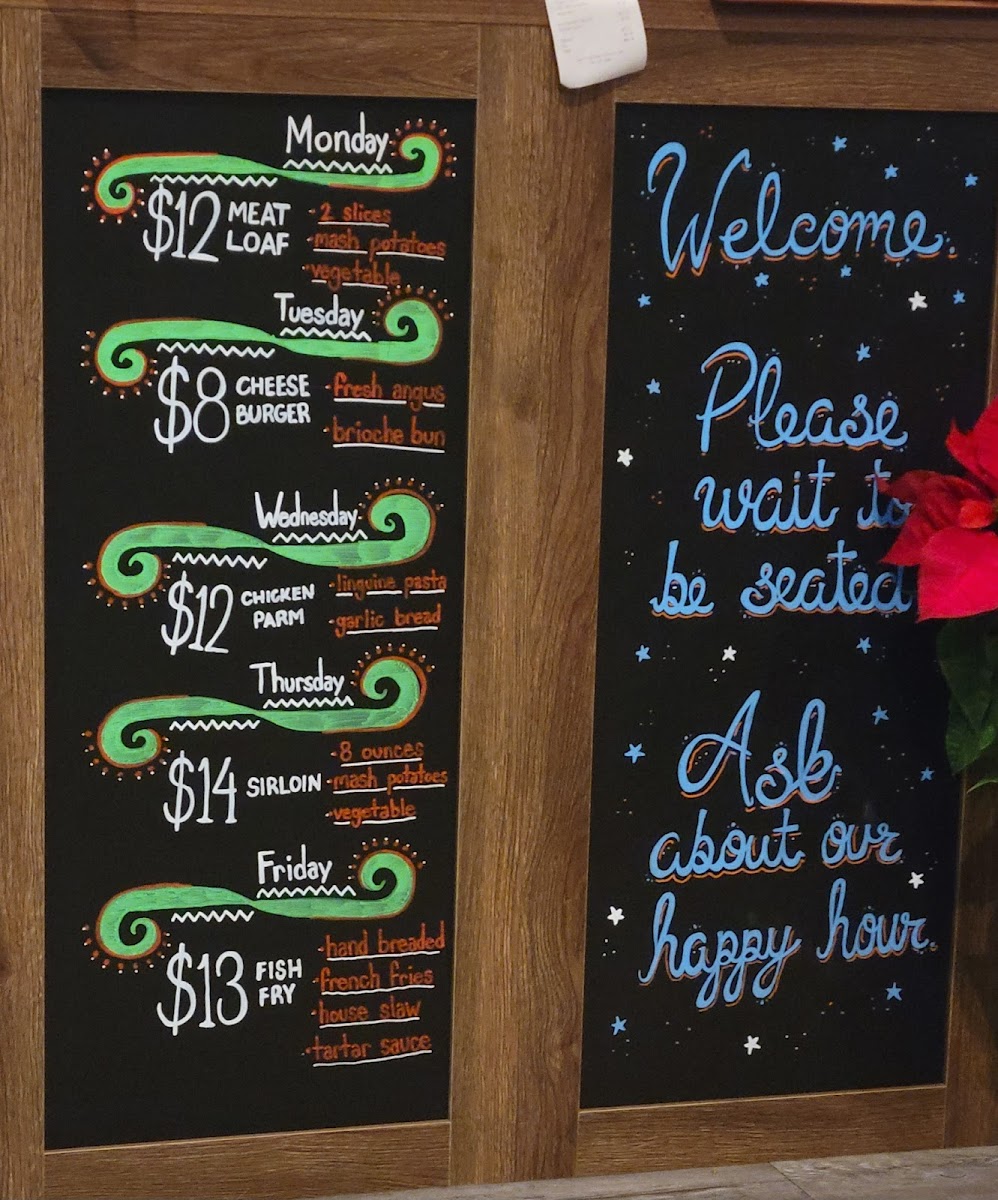 Monday
$12 MEAT
LOAF
·2 slices
·mash potatoes
·vegetable
Tuesday
$8 CHEESE
BURGER
·fresh angus
·brioche bun
Wednesday
$12 CHICKEN
PARM
·linguine pasta
·garlic bread
Thursday
$14 SIRLOIN
·8 ounces
·mash potatoes
·vegetable
Friday
$13 FISH
FRY
·hand breaded
·french fries
·house slaw
·tartar sauce
Welcome.
Please
wait to
be seated
Ask
about our
happy hour.